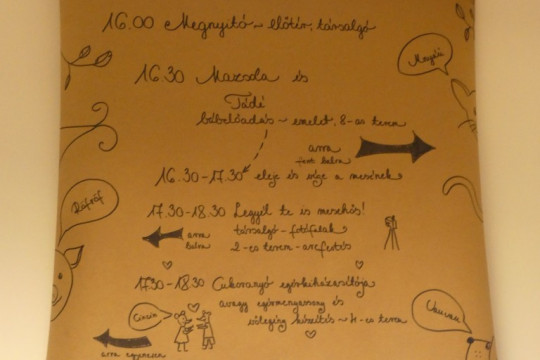 16.00 Megnyitó ~ előtér, társalgó
Magéri
16.30 Mazsola és
Tádé
bábelőadás ~ emelet, 8-as terem
arra
fent balra
16.30-17.30 eleje és vége a mesének
Röfröf
17.30-18.30 Legyél te is mesehős!
társalgó - fotófalak
2-es terem - arcfestés
arra
balra
17.30-18.30 Cukoranyó egérkiházasítója
avagy egérmenyasszony és
vőlegény készítés ~ 4-es terem
Cincin
arra egyenesen